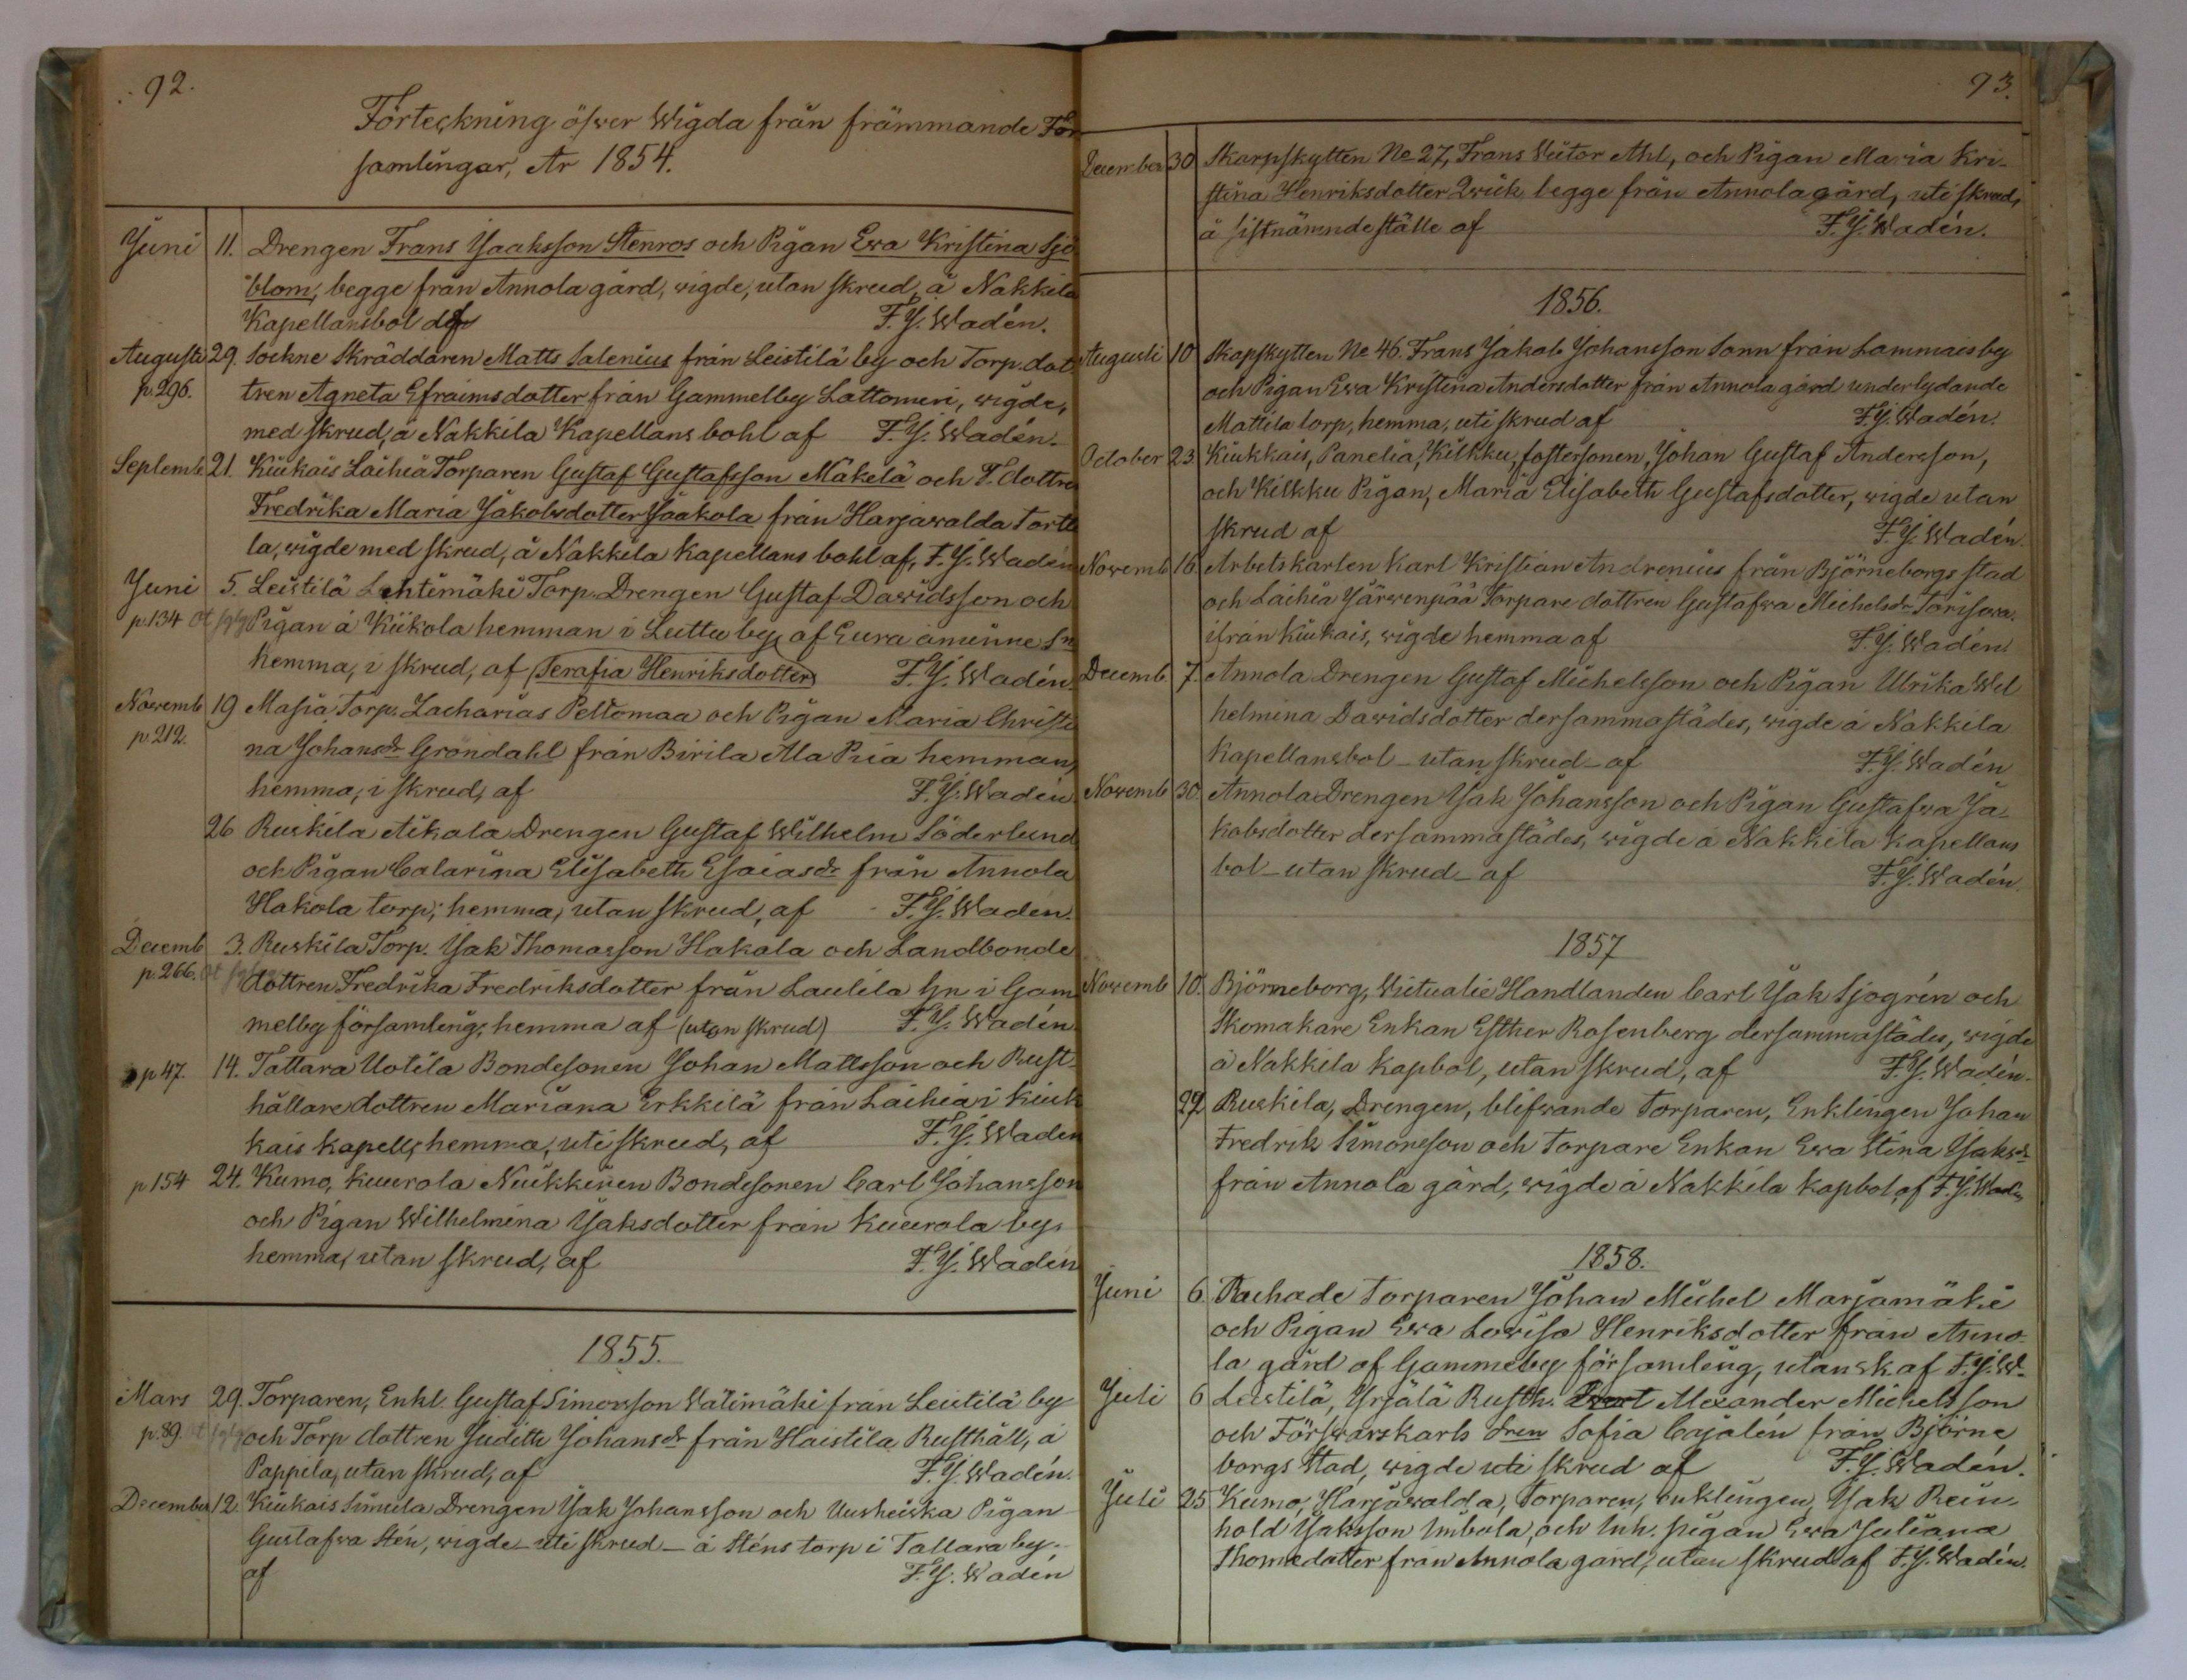 92.
Förteckning öfwer Wigda från främmande För
samlingar, År 1854.
Juni 11. Drengen Frans Isaaksson Stenros och Pigan Ewa Kristina Sjö
blom, begge från Annola gård, wigde, utan skrud, å Nakkila
Kapellansbol af F. J. Wadén.
Augusti 29. Sockne Skräddaren Matts Salenius från Leistilä by och Torp.dot
p. 296. tren Agneta Efraimsdotter från Gammelby Lattomeri, wigde,
med skrud, å Nakkila Kapellans bohl af F. J. Wadén.
Septemb 21. Kiukais Laihia Torparen Gustaf Gustafsson Mäkelä och T. dottre
Fredrika Maria Jakobsdotter Jaakola från Harjawalda Tortti
la, wigde med skrud, å Nakkila kapellans bohl af, F. J. Wadén
Juni 5. Leistilä Lehtimäki Torp. Drengen Gustaf Dawidsson och
p. 134 Pigan å Kiikola hemman i Luttu by af Eura åminne Sn
hemma, i skrud, af (Serafia Henriksdotter) F. J. Wadén.
Novemb 19 Masia Torp. Zacharias Peltomaa och Pigan Maria Christi
p. 212. na Johansdr Gröndahl från Birila Ala Piia hemman,
hemma, i skrud, af F. J. Wadén
26 Ruskila Aikala Drengen Gustaf Wilhelm Söderlund
och Pigan Catarina Elisabeth Esaiasdr från Annola
Hakola torp, hemma, utan skrud, af F. J. Wadén.
Decemb 3. Ruskila Torp. Isak Thomasson Hakala och Landbonde
p. 266. dottren Fredrika Fredriksdotter från Lautila by i Gam
melby församling, hemma af (utan skrud) F. J. Wadén.
p 47. 14. Tattara Uotila Bondesonen Johan Mattsson och Rust-
hållare dottren Mariana Erkkilä från Laihia i Kiuk
kais kapell, hemma, uti skrud, af F. J. Wadén
p 154 24. Kumo, Kuurola Nuikkinen Bondesonen Carl Johansson
och Pigan Wilhelmina Isaksdotter från Kuurola by,
hemma, utan skrud, af F. J. Wadén
1855.
Mars 29. Torparen, Enkl. Gustaf Simonsson Wälimäki från Leistilä by
p. 89. och Torp dottren Judith Johansdr från Haistila Rusthåll, å
Pappila, utan skrud, af F. J. Wadén.
December 12. Kiukais Simula Drengen Isak Johansson och Uusheiska Pigan
Gustafwa Stén, wigde uti skrud å Sténs torp i Tattara by.
af F. J. Wadén
93.
December 30 Skarpskytten No 27, Frans Victor Ahl, och Pigan Maria Kri-
stina Henriksdotter Qwick, begge från Annola gård, uti skrud,
å sistnämnde ställe af F. J. Wadén.
1856.
Augusti 10 Skapskytten No 46. Frans Jakob Johansson Sonn från Lammais by
och Pigan Ewa Kristina Andersdotter från Annola gård underlydande
Mattila torp, hemma, uti skrud af F. J. Wadén.
October 23. Kiukkais, Panelia, Kilkku, fostersonen, Johan Gustaf Andersson,
och Kilkku Pigan, Maria Elisabeth Gustafsdotter, wigde utan
skrud af F. J. Wadén.
Novemb 16 Arbetskarlen Karl Kristian Andrenius från Björneborgs stad
och Laihia Järwenpää Torpare dottren Gustafwa Michelsdr
ifrån Kiukais, wigde hemma af F. J. Wadén
Decemb 7. Annola Drengen Gustaf Michelsson och Pigan Ulrika Wil
helmina Dawidsdotter dersammastädes, wigde å Nakkila
kapellansbol utan skrud af F. J. Wadén
Novemb 30. Annola Drengen Isak Johansson och Pigan Gustafwa Ja-
kobsdotter dersammastädes, wigde å Nakkila kapellans
bol utan skrud af F. J. Wadén.
1857
Novemb 10. Björneborg, Victualie Handlanden Carl Isak Sjogrén och
Skomakare Enkan Esther Rosenberg dersammastädes, wigde
å Nakkila kapbol, utan skrud, af F. J. Wadén.
22 Ruskila, Drengen, blifwande Torparen, Enklingen Johan
Fredrik Simonsson och Torpare Enkan Ewa Stina Isaksdr
från Annola gård, wigde å Nakkila kapbol af F. J. Wadén
1858.
Juni 6. Torparen Johan Michel Marjamäki
och Pigan Ewa Lowisa Henriksdotter från Anno-
la gård af Gammelby församling, utan sk. af F. J. W.
Juli 6 Leistilä, Yrjälä Rusth. Alexander Michelsson
och Förswarskarls dren Sofia Cajalén från Björne
borgs Stad, wigde uti skrud af F. J. Wadén.
Juli 25 Kumo, Harjawalda, Torparen, enklingen, Isak Rein-
hold Isaksson Imbola, och Inh. pigan Ewa Juliana
Thomædotter från Annola gård, utan skrud af F. J. Wadén.